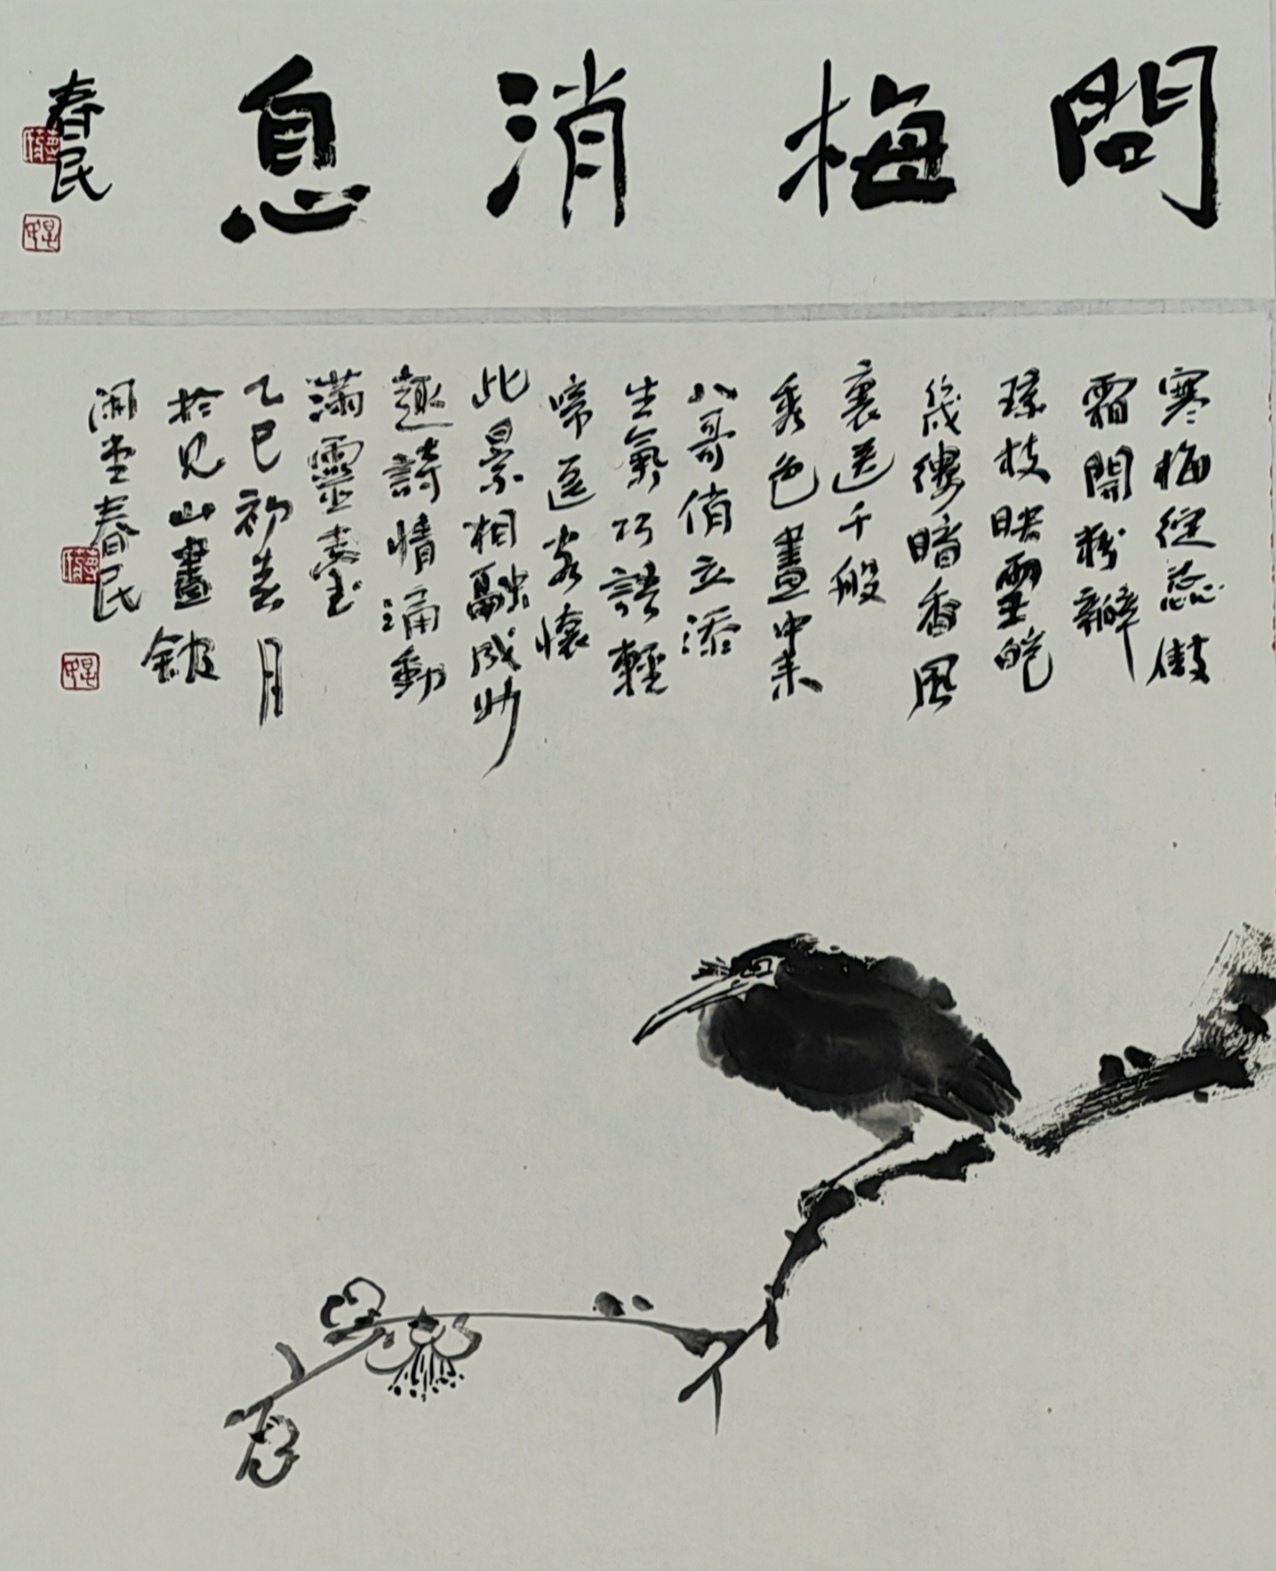 問梅消息
春民
寒梅綻蕊傲
霜開粉瓣
瓊枝映雪皚
幾縷暗香風
裏送千般
秀色畫中來
八哥俏立添
生氣巧語輕
啼逗客懷
此景相融成妙
趣詩情涌動
滿靈臺
乙巳初春月
於見山畫館
湖堂春民